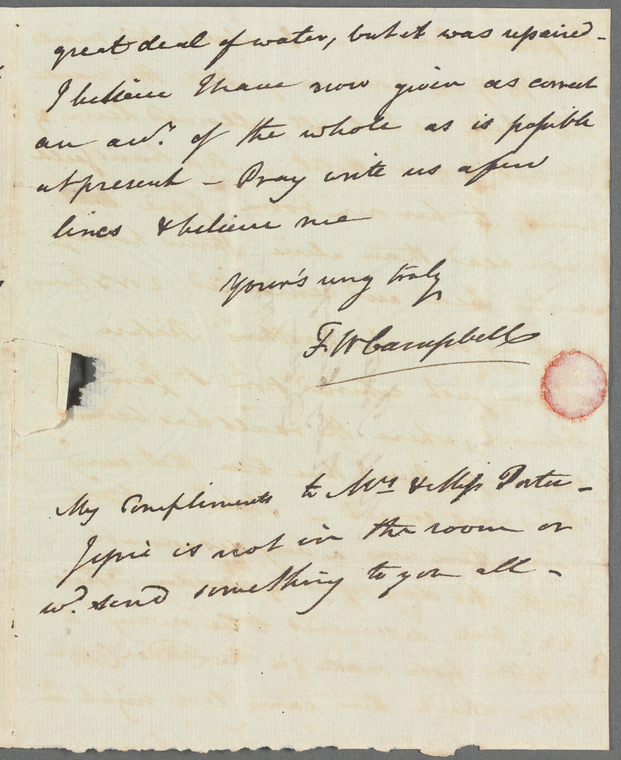 great deal of water, but it was repaired -
I believe I have now given as correct
an acct. of the whole as is possible
at present - Pray write us a few
lines & believe me
Your's very truly
F. W Campbell
My compliments to Mrs & Miss Porter -
Jessie is not in the room or
wd. send something to you all -